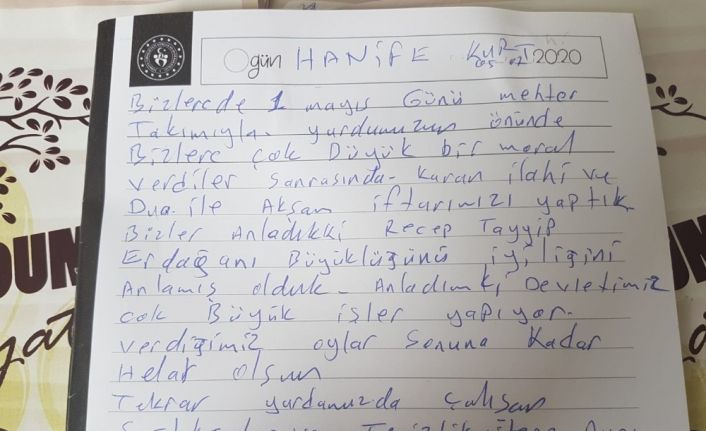 Ogün HANİFE KURT 2020
05 07
Bizlerede 1 mayıs Günü mehter
Takımıyla yurdumuzun önünde
Bizlere çok Düyük bir moral
verdiler Sanrasında- Kuran ilahi ve
Dua ile Akşam iftarımızı yaptık
Bizler Anladıkki Recep Tayyip
Erdağanı Büyüklüğünü iyiliğini
Anlamış olduk- Anladımkı Devletimiz
çok Büyük işler yapıyor.
verdiğimiz oylar Sonuna Kadar
Helal olsun
Tekrar yurdumuzda Çalışan